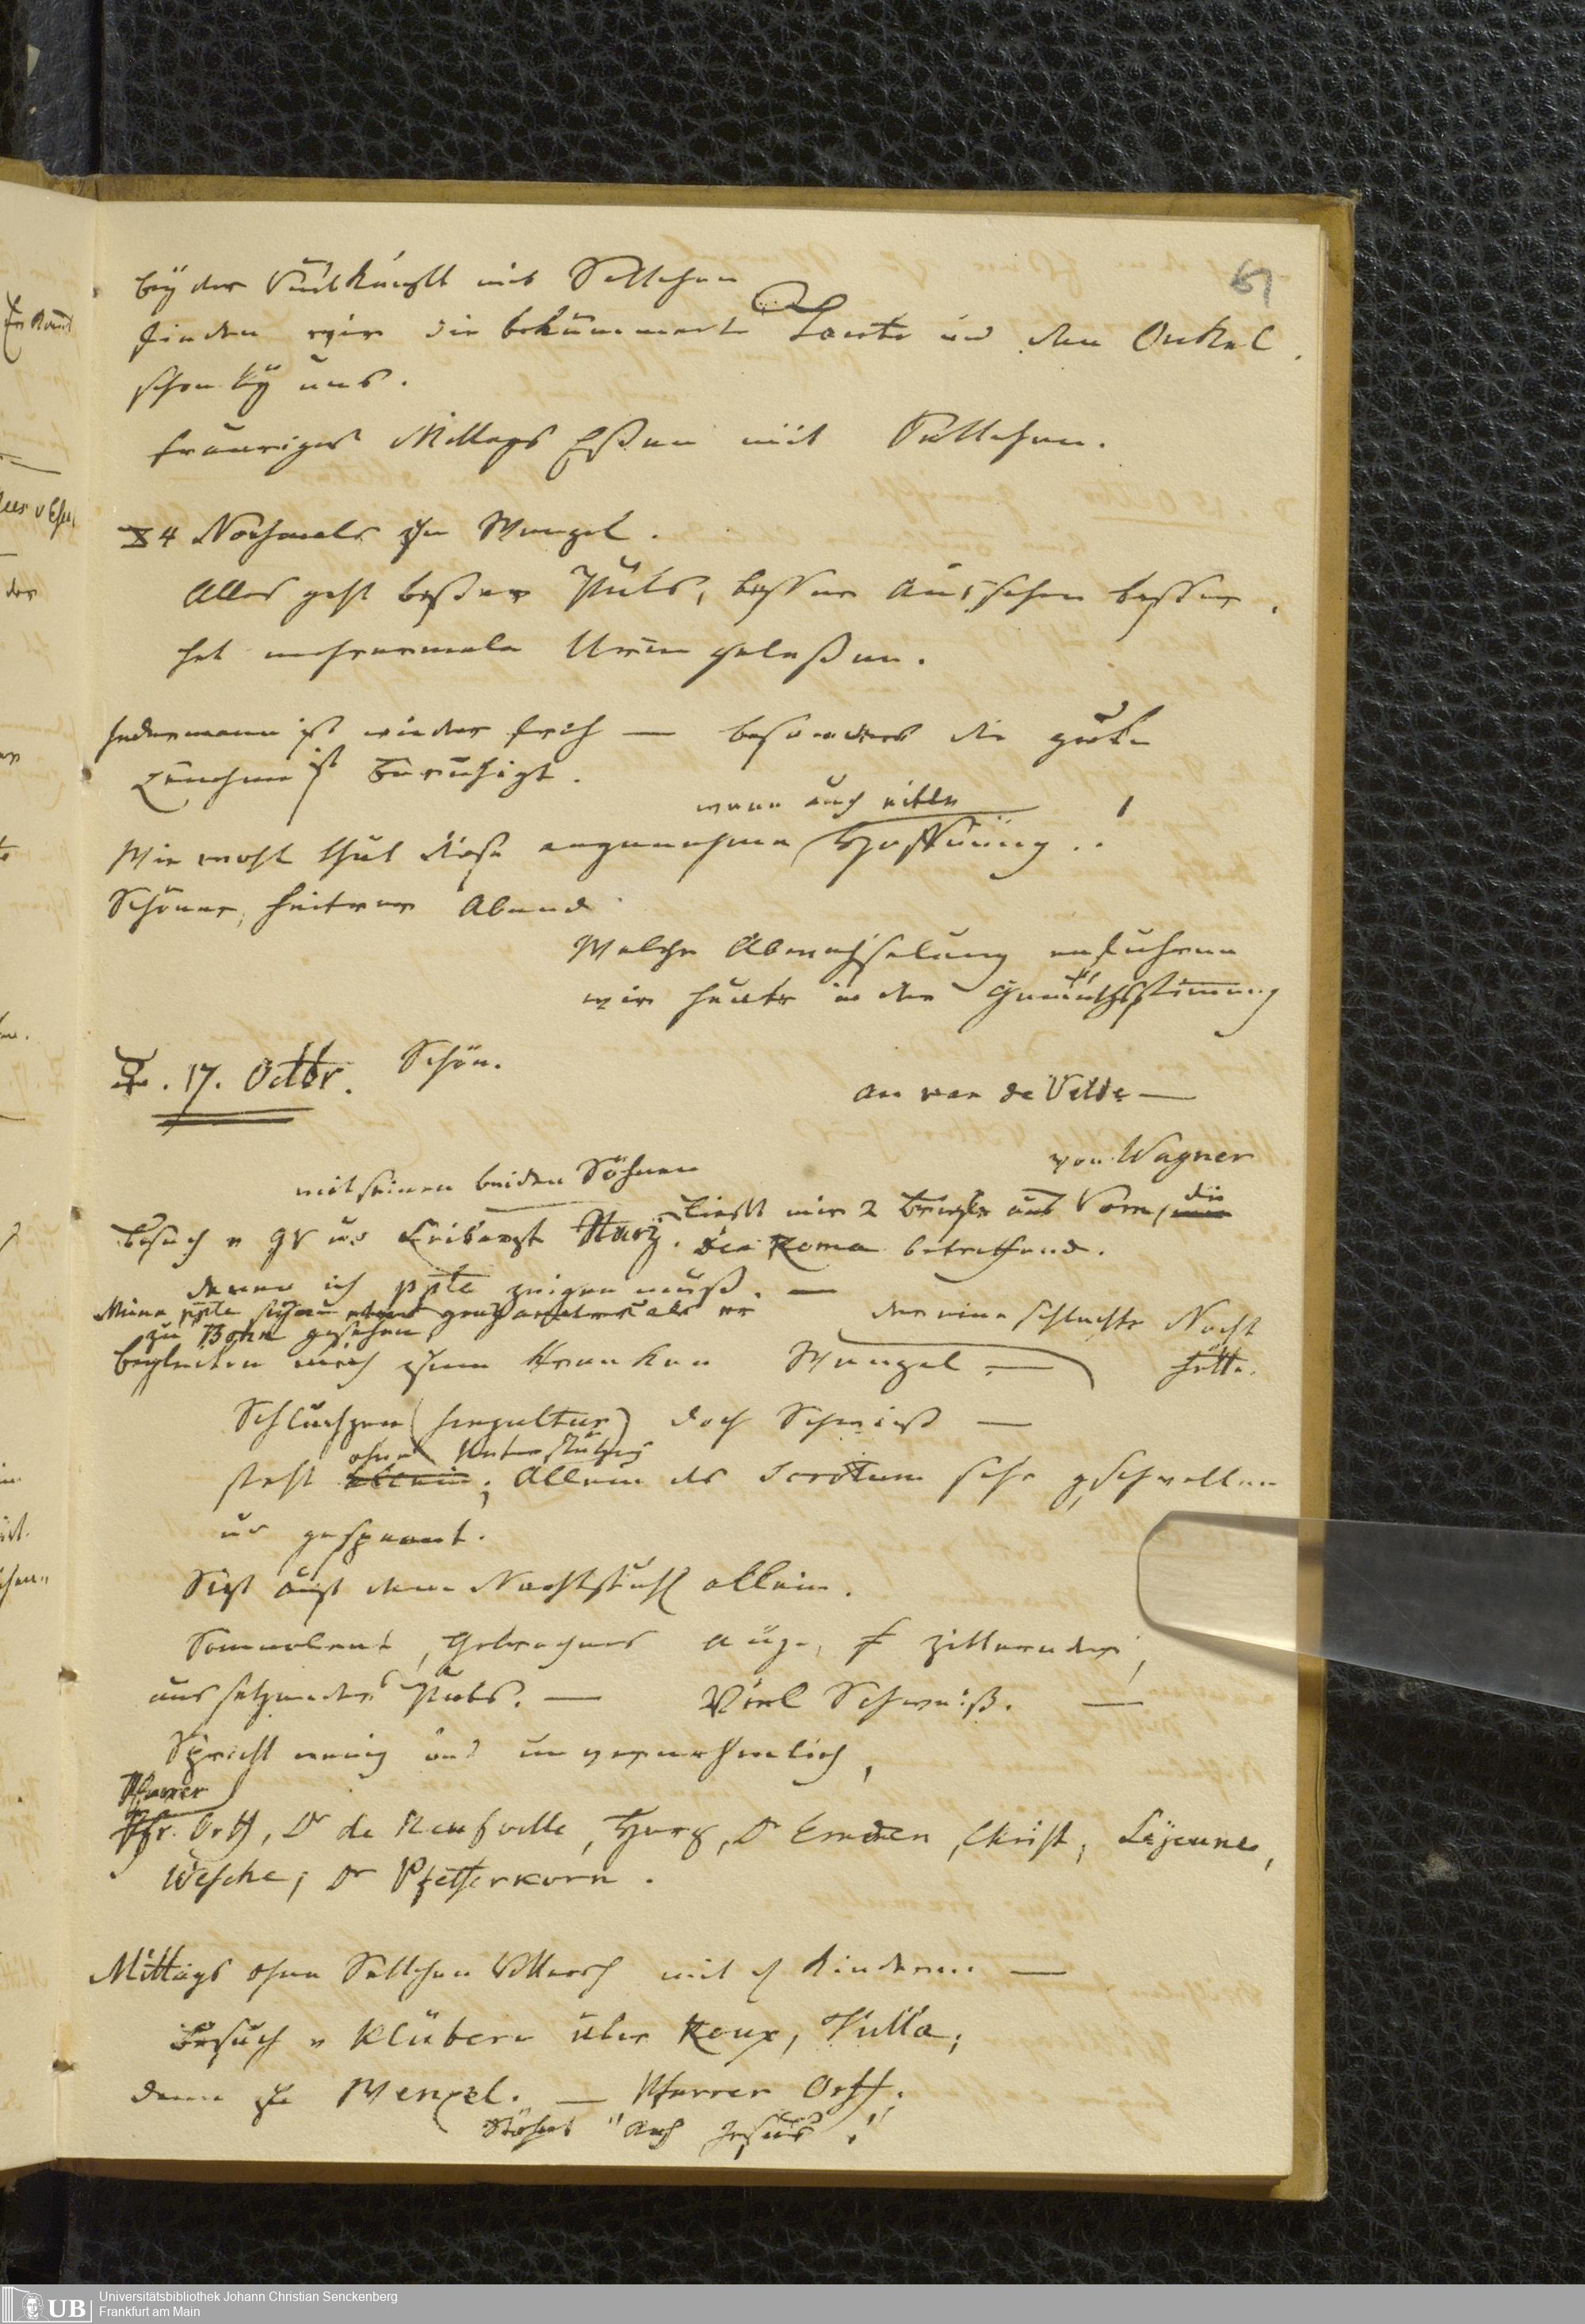 61
bey der Rückkunft mit Settchen
finden wir die bekümmerte Tante und den Onkel
schon bey uns.
trauriges Mittags Eßen mit Settchen.
4 Nochmals zu Wenzel.
Alles geht beßer Puls, besser Aussehen besser,
hat mehrermale Urin gelaßen.
Jedermann ist wieder froh — besonders die gute
Lenchen ist beruhigt.
wenn auch eitle
Wie wohl thut diese angenehme Hoffnung..!
Schöner, heitrer Abend
Welche Abwechselung erfuhren
wir heute in der Gemüthsstimmung
♀. 17. Octbr. Schön.
an van de Velde —
von Wagner
mit seinen beiden Söhnen
Besuch v GR und Leibarzt Starz. ließt mir 2 Briefe aus Rom, die
die Roma betreffend.
denen ich ppte zeigen muß. —
Meine ppte seyen ganz anders als er
zu Bonn gesehen
der eine schlechte Nacht
hatte.
begleiten mich zum Kranken Wenzel —
Schluchzen (singultus) doch Schweiß —
ohne Unterstützung
steht allein; Allein das Scrotum sehr geschwollen
und gespannt.
Sizt auf dem Nachtstuhl allein.
Somnolent, Gebrochenes Auge, zitternder,
aussetzender Puls. — Viel Schweiß. —
Spricht wenig und unvernehmlich,
Pfarrer
Pfr. Orth, Dr de Neufville, Dr Emden, Christ, Lejeune,
Wesche, Dr Pfefferkorn.
Mittags ohne Settchen mit d Kindern. —
Besuch v Klübern über Roux, Tulla,
dann zu Wenzel. — Pfarrer Orth.
"Ach Jesus!"
Universitätsbibliothek Johann Christian Senckenberg
Frankfurt am Main
UB